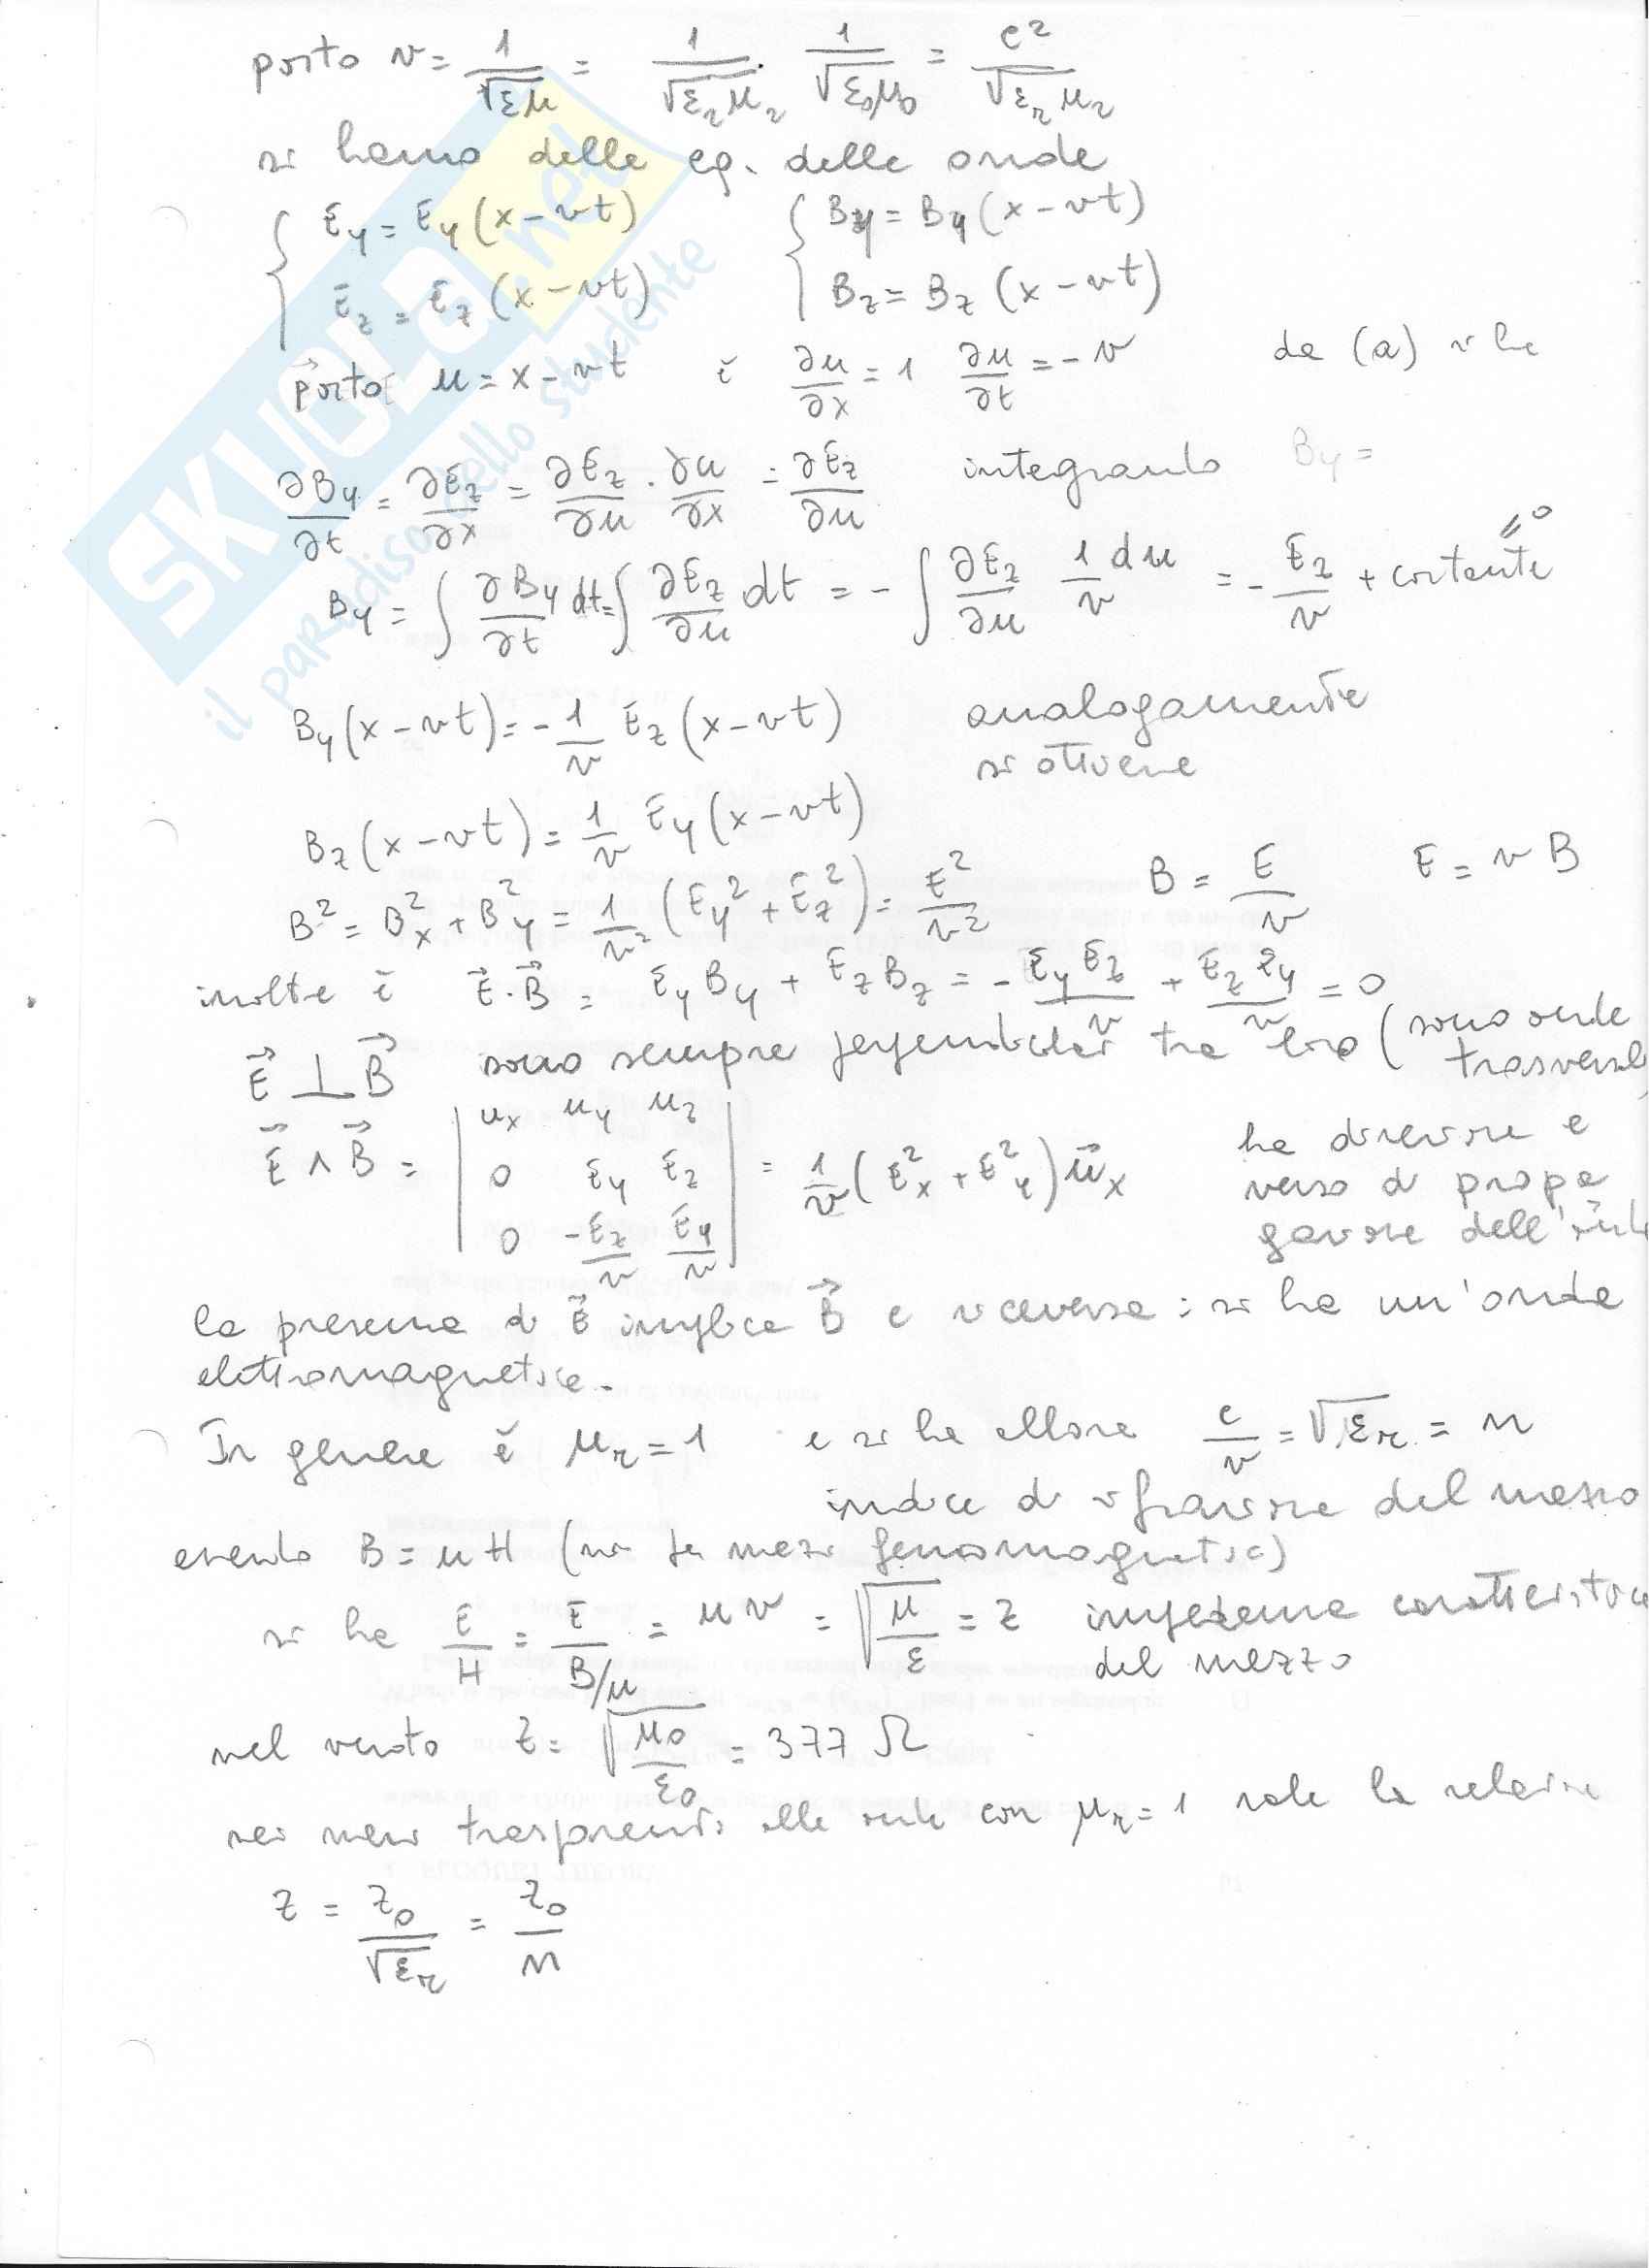 posto v = 1/√εμ = 1/√ε_r μ_r · 1/√ε₀μ₀ = c²/√ε_r μ_r
si hanno delle eq. delle onde
{ E_y = E_y (x-vt)   { B_y = B_y (x-vt)
E_z = E_z (x-vt)   B_z = B_z (x-vt)
posto u = x-vt è ∂u/∂x = 1 ∂u/∂t = -v da (a) si ha
∂B_y/∂t = ∂E_z/∂x = ∂E_z/∂u · ∂u/∂x = ∂E_z/∂u integrando B_y =
B_y = ∫ ∂B_y/∂t dt = ∫ ∂E_z/∂u dt = - ∫ ∂E_z/∂u 1/v du = - E_z/v + costante = 0
B_y (x-vt) = - 1/v E_z (x-vt) analogamente
si ottiene
B_z (x-vt) = 1/v E_y (x-vt)
B² = B_x² + B_y² = 1/v² (E_y² + E_z²) = E²/v²   B = E/v   E = vB
inoltre è E⃗·B⃗ = E_y B_y + E_z B_z = - E_y E_z/v + E_z E_y/v = 0
E⃗ ⊥ B⃗ sono sempre perpendicolari tra loro (sono onde
trasversali)
E⃗ ∧ B⃗ = | u_x u_y u_z ; 0 E_y E_z ; 0 -E_z/v E_y/v | = 1/v (E_x² + E_y²) u⃗_x ha direzione e
verso di propa
gazione dell'onda
la presenza di E⃗ implica B⃗ e viceversa: si ha un'onda
elettromagnetica.
In genere è μ_r = 1 e si ha allora c/v = √ε_r = n
indice di rifrazione del mezzo
essendo B = μH (no per mezzi ferromagnetici)
si ha E/H = E/(B/μ) = μv = √(μ/ε) = Z impedenza caratteristica
del mezzo
nel vuoto Z = √(μ₀/ε₀) = 377 Ω
nei mezzi trasparenti alle onde con μ_r = 1 vale la relazione
Z = Z₀/√ε_r = Z₀/n
SKUOLA.net
il paradiso dello studente